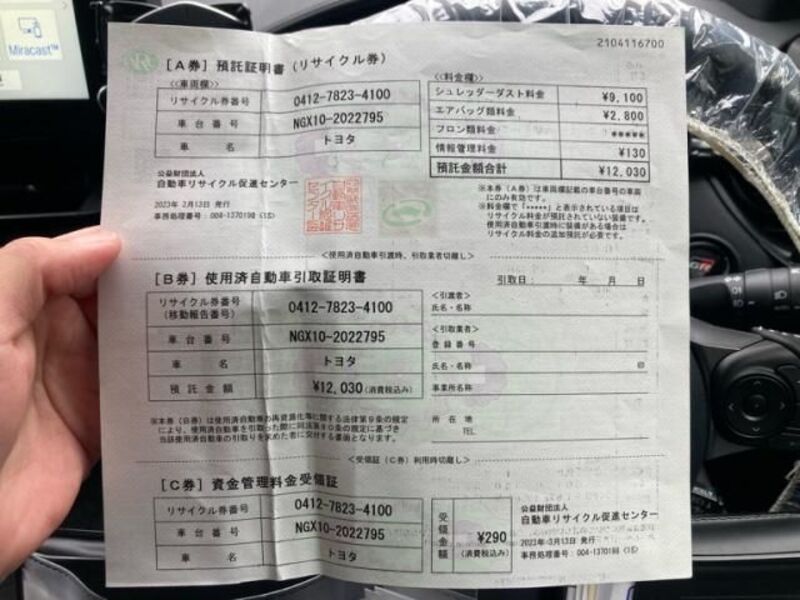 Miracast™
2104116700
[A券] 預託証明書(リサイクル券)
<<車両欄>>
リサイクル券番号 0412-7823-4100
車台番号 NGX10-2022795
車名 トヨタ
<<料金欄>>
シュレッダーダスト料金 ¥9,100
エアバッグ類料金 ¥2,800
フロン類料金 *****
情報管理料金 ¥130
預託金額合計 ¥12,030
公益財団法人
自動車リサイクル促進センター
2023年 2月13日 発行
事務処理番号:004-1370198 (1S)
※本券(A券)は車両欄記載の車台番号の車両
にのみ有効です。
※料金欄で「*****」と表示されている項目は
リサイクル料金が預託されていない装備です。
使用済自動車引渡時に装備がある場合は
リサイクル料金の追加預託が必要です。
<使用済自動車引渡時、引取業者切離し>
[B券] 使用済自動車引取証明書
引取日: 年 月 日
リサイクル券番号
(移動報告番号) 0412-7823-4100
車台番号 NGX10-2022795
車名 トヨタ
預託金額 ¥12,030(消費税込み)
<引渡者>
氏名・名称
<引取業者>
登録番号
氏名・名称 ㊞
事業所名称
所在地
TEL
※本券(B券)は使用済自動車の再資源化等に関する法律第9条の規定
により、使用済自動車を引取った際に同法第80条の規定に基づき
当該使用済自動車の引取りを求めた者に交付する書面となります。
<受領証(C券)利用時切離し>
[C券] 資金管理料金受領証
リサイクル券番号 0412-7823-4100
車台番号 NGX10-2022795
車名 トヨタ
受領金額 ¥290
(消費税込み)
公益財団法人
自動車リサイクル促進センター
2023年 3月13日 発行
事務処理番号:004-1370198 (1S)
GR